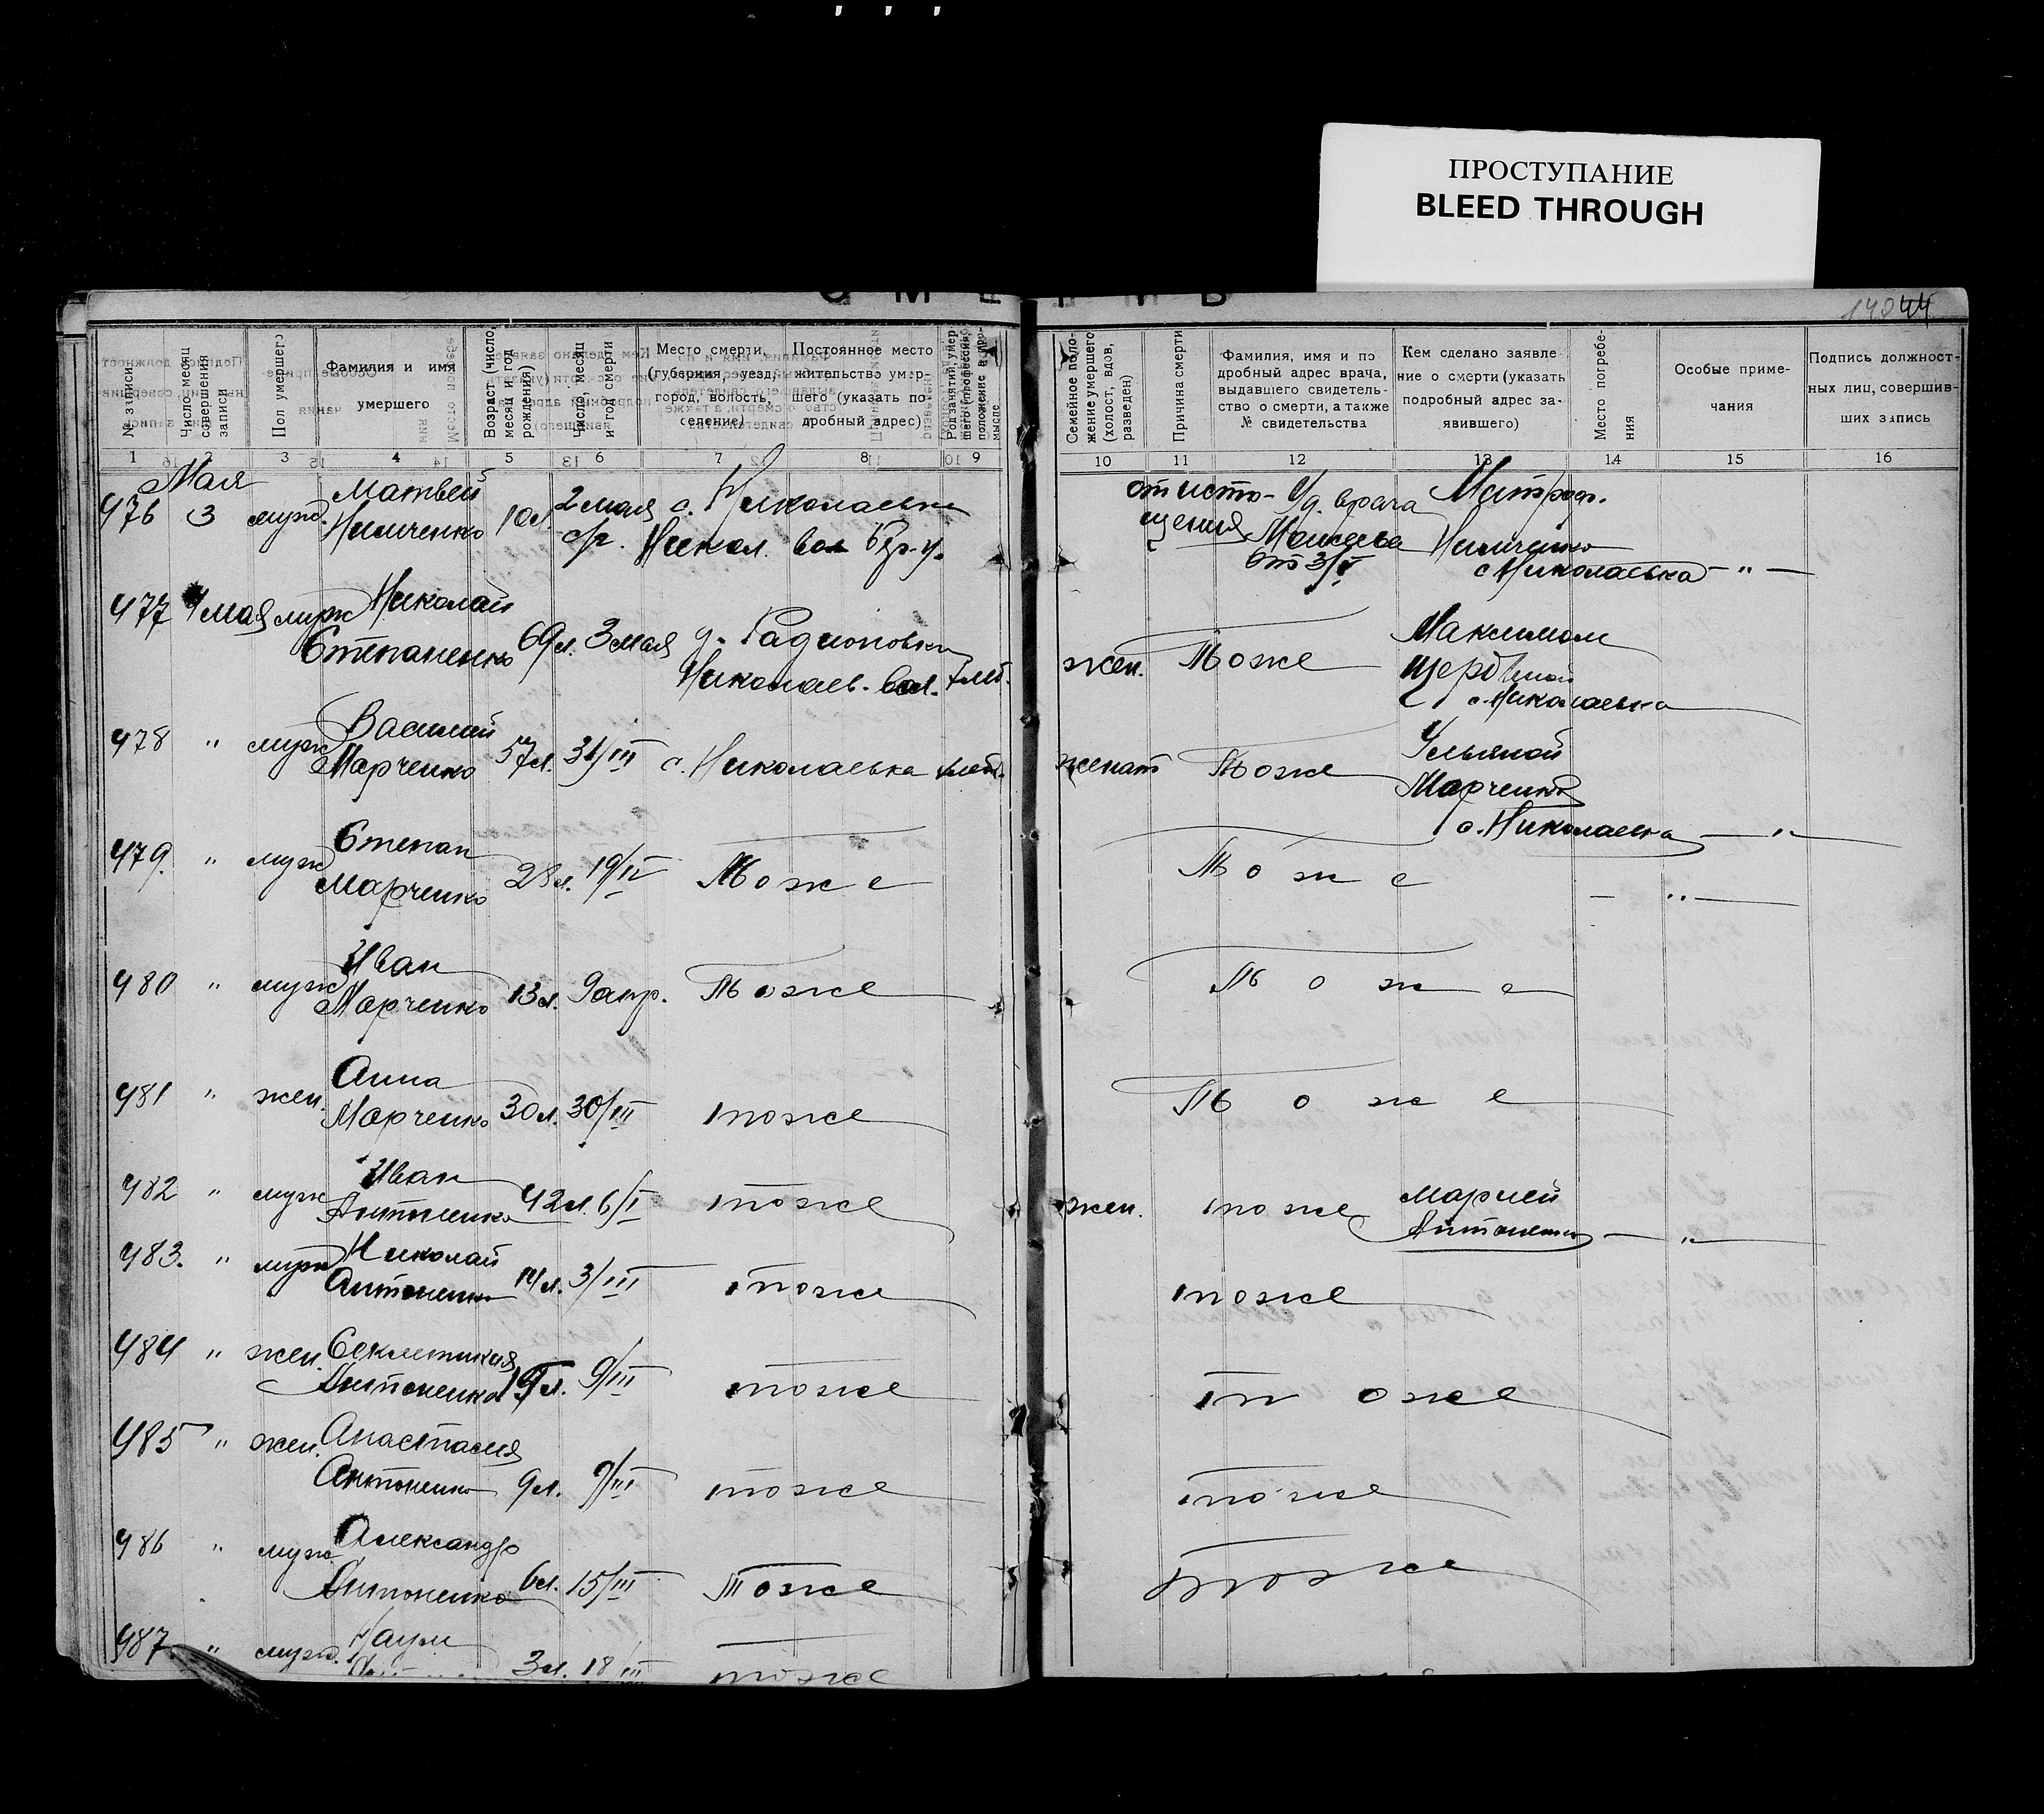 ПРОСТУПАНИЕ
BLEED THROUGH
44
№ записи
Число, месяц совершения записи
Пол умершего
Фамилия и имя
умершего
Возраст (число, месяц и год рождения)
Число, месяц и год смерти
Место смерти, (губерния, уезд, город, волость, селение)
Постоянное место жительство умершего (указать подробный адрес)
Семейное положение умершего (холост, вдов, разведен)
Причина смерти
Фамилия, имя и подробный адрес врача, выдавшего свидетельство о смерти, а также № свидетельства
Кем сделано заявление о смерти (указать подробный адрес заявившего)
Место погребения
Особые примечания
Подпись должностных лиц, совершивших запись
1 2 3 4 5 6 7 8 9 10 11 12 13 14 15 16
Мая
476 3 муж. Матвей 10л. 2 мая с. Николаевка от истощения врача Митроф.
с/г. Никол. вол от 3/V с Николаевка - " -
477 4 мая муж Николай
Степаненко 69л. 3 мая д. Радионовка жен. Тоже Максимом
Николаев. вол. хлеб. с. Николаевка
478 " муж Василий
Марченко 57л. 31/III с. Николаевка хлеб. женат Тоже Ульяной
Марченко
с. Николаевка - " -
479. " муж Степан
Марченко 28л. 19/IV Тоже Тоже - " -
480 " муж Иван
Марченко 13л. 9 апр. Тоже Тоже
481 " жен. Анна
Марченко 30л. 30/III тоже Тоже
482 " муж Иван
Антоненко 42л. 6/I тоже жен. тоже Марией
Антоненко - " -
483. " муж Николай
Антоненко 14л. 3/III тоже тоже
484 " жен.
Антоненко 9/III тоже тоже
485 " жен. Анастасия
Антоненко 9л. 9/III тоже тоже
486 " муж Александр
Антоненко 6л. 15/III Тоже Тоже
487. " муж. Наум
3л. 18/III тоже